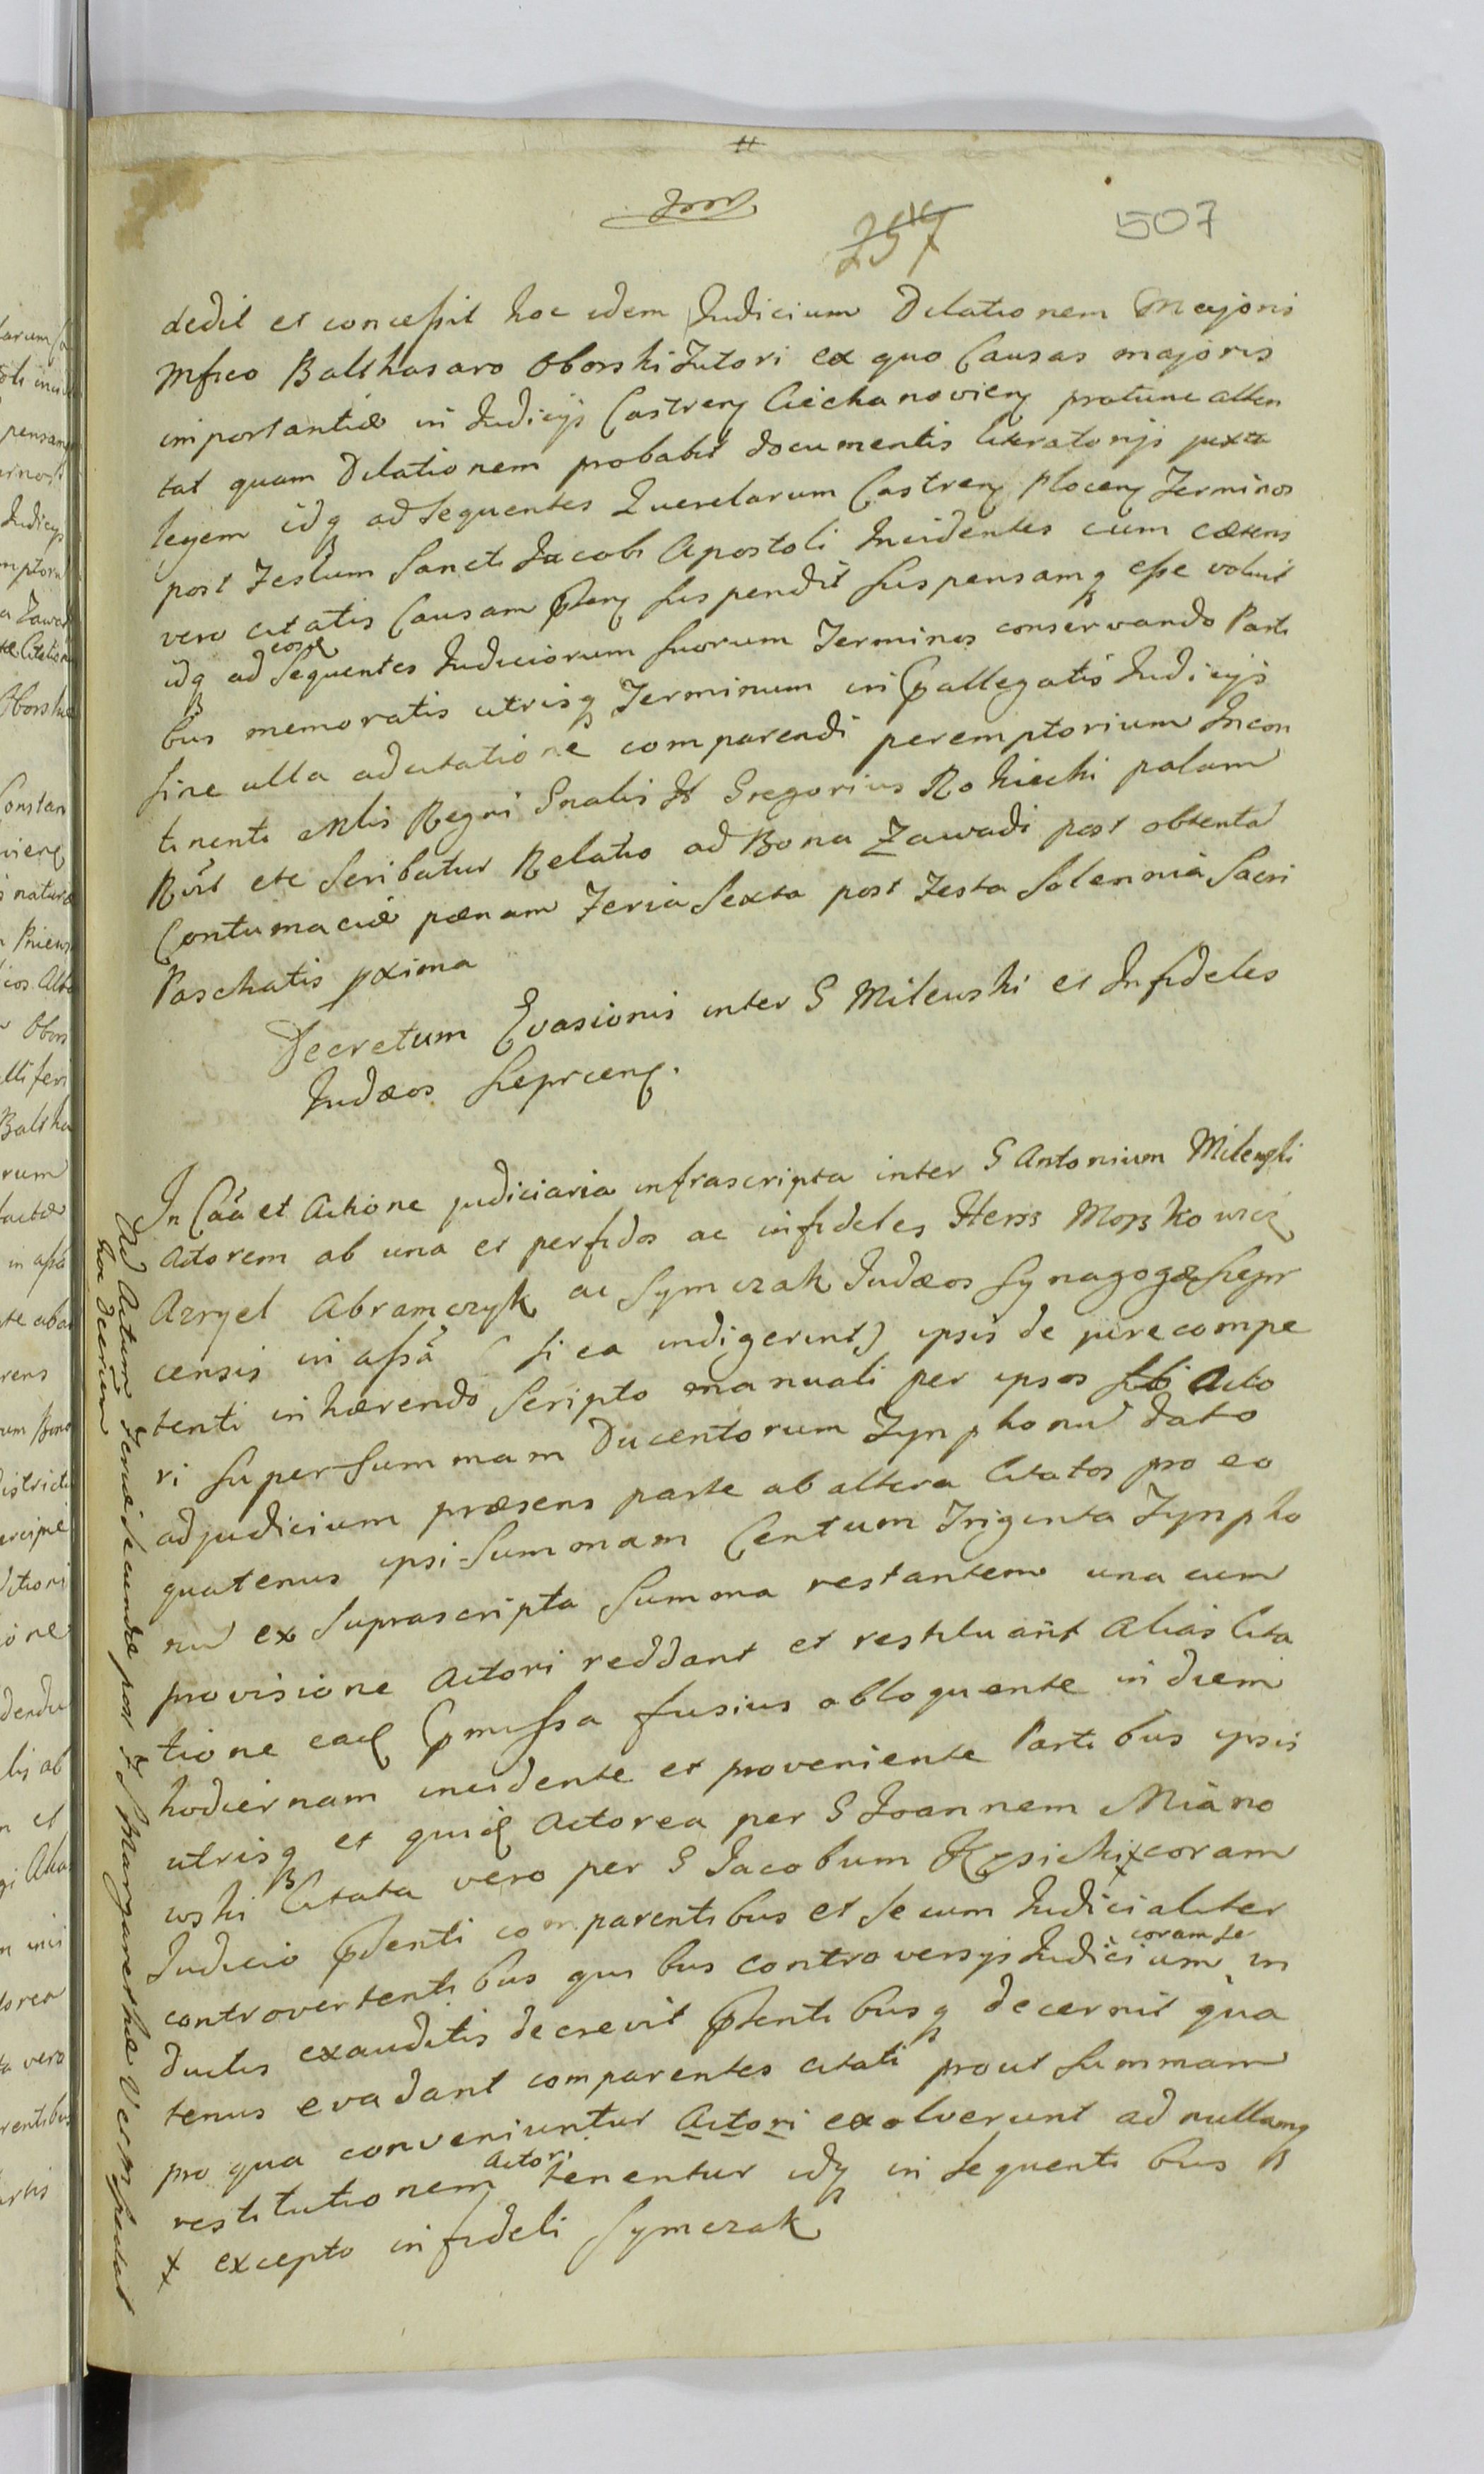 257 507
dedit et concessit hoc idem Judicium Dilationem Majoris
Mfico Balthasaro Oborski Tutori ex quo Causas majoris
importantiæ in Judicijs Castren Ciechanovien protunc atten
tat quam Dilationem probabit documentis literatorijs juxta
legem idq ad sequentes Querelarum Castren Plocen Terminos
post Festum Sancti Jacobi Apostoli Incidentes cum cæteris
vero citatis Causam pñtem suspendit suspensamq esse voluit
idq ad eosd Sequentes Judiciorum suorum Terminos conservando Parti
bus memoratis utrisq Terminum in pallegatis Judicijs
sine ulla adcitatione comparendi peremptorium Incon
tinenti Mlis Regni Gnalis H Gregorius Rokicki palam
Rūt etc Scribatur Relatio ad Bona Zawadi post obtentā
Contumaciæ pænam Feria Sexta post Festa Solennia Sacri
Paschatis pxima
Decretum Evasionis inter G Milewski et Infideles
Judæos Sieprcen.
In Caā et Actione judiciaria infrascripta inter G Antonium Milewski
Actorem ab una et perfidos ac infideles Herss Moszkowicz
Azryel Abramczyk ac Symczak Judæos Synagogæ Siepr
censis in assā (si ea indigerint) ipsis de jure compe
tenti inhærendo Scripto manuali per ipsos sibi Acto
ri super Summam Ducentorum Tynphonū dato
ad judicium præsens parte ab altera Citatos pro eo
quatenus ipsi Summam Centum Triginta Tynpho
nū ex suprascripta Summa restantem una cum
provisione Actori reddant et restituant alias Cita
tione ead pmissa fusius obloquente in diem
hodiernam incidente et proveniente Partibus ipsis
utrisq et quid Actorea per G Joannem Miano
wski Citata vero per G Jacobum Kęsicki x coram
Judicio pñdenti comparentibus et secum Judicialiter
controvertentibus quibus controversijs Judicium coram se in
ductis exauditis decrevit pñtibusq decernit qua
tenus evadant comparentes citati prout Summam
pro qua conveniuntur Actori exolverunt ad nullamq
restitutionem Actori tenentur idq in sequentibus
x excepto infideli Symczak
Ad Actum Feriæ Secundæ post F S Margarethæ V et M spectat
hoc Decretum